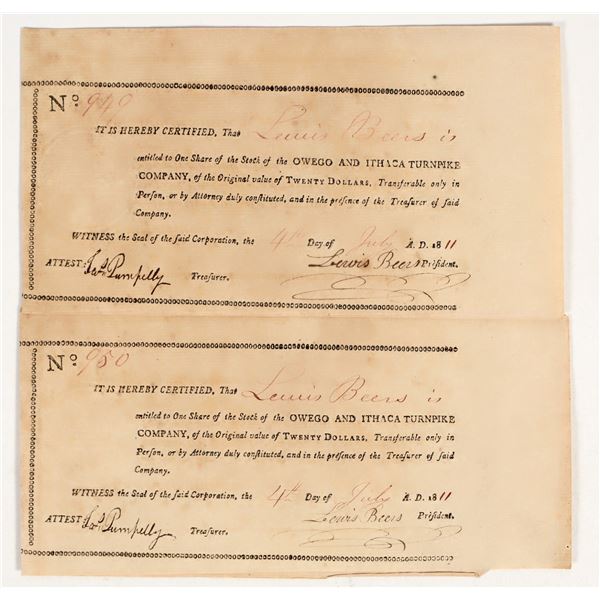 No. 940
IT IS HEREBY CERTIFIED, That Lewis Beers is
entitled to One Share of the Stock of the OWEGO AND ITHACA TURNPIKE
COMPANY, of the Original value of TWENTY DOLLARS, Transferable only in
Person, or by Attorney duly conſtituted, and in the preſence of the Treaſurer of ſaid
Company.
WITNESS the Seal of the ſaid Corporation, the 4th Day of July A. D. 1811
ATTEST: Jas Pumpelly Treaſurer. Lewis Beers Preſident.
No. 950
IT IS HEREBY CERTIFIED, That Lewis Beers is
entitled to One Share of the Stock of the OWEGO AND ITHACA TURNPIKE
COMPANY, of the Original value of TWENTY DOLLARS, Transferable only in
Perſon, or by Attorney duly conſtituted, and in the preſence of the Treaſurer of ſaid
Company.
WITNESS the Seal of the ſaid Corporation, the 4th Day of July A. D. 1811
ATTEST: Jas Pumpelly Treaſurer. Lewis Beers Preſident.